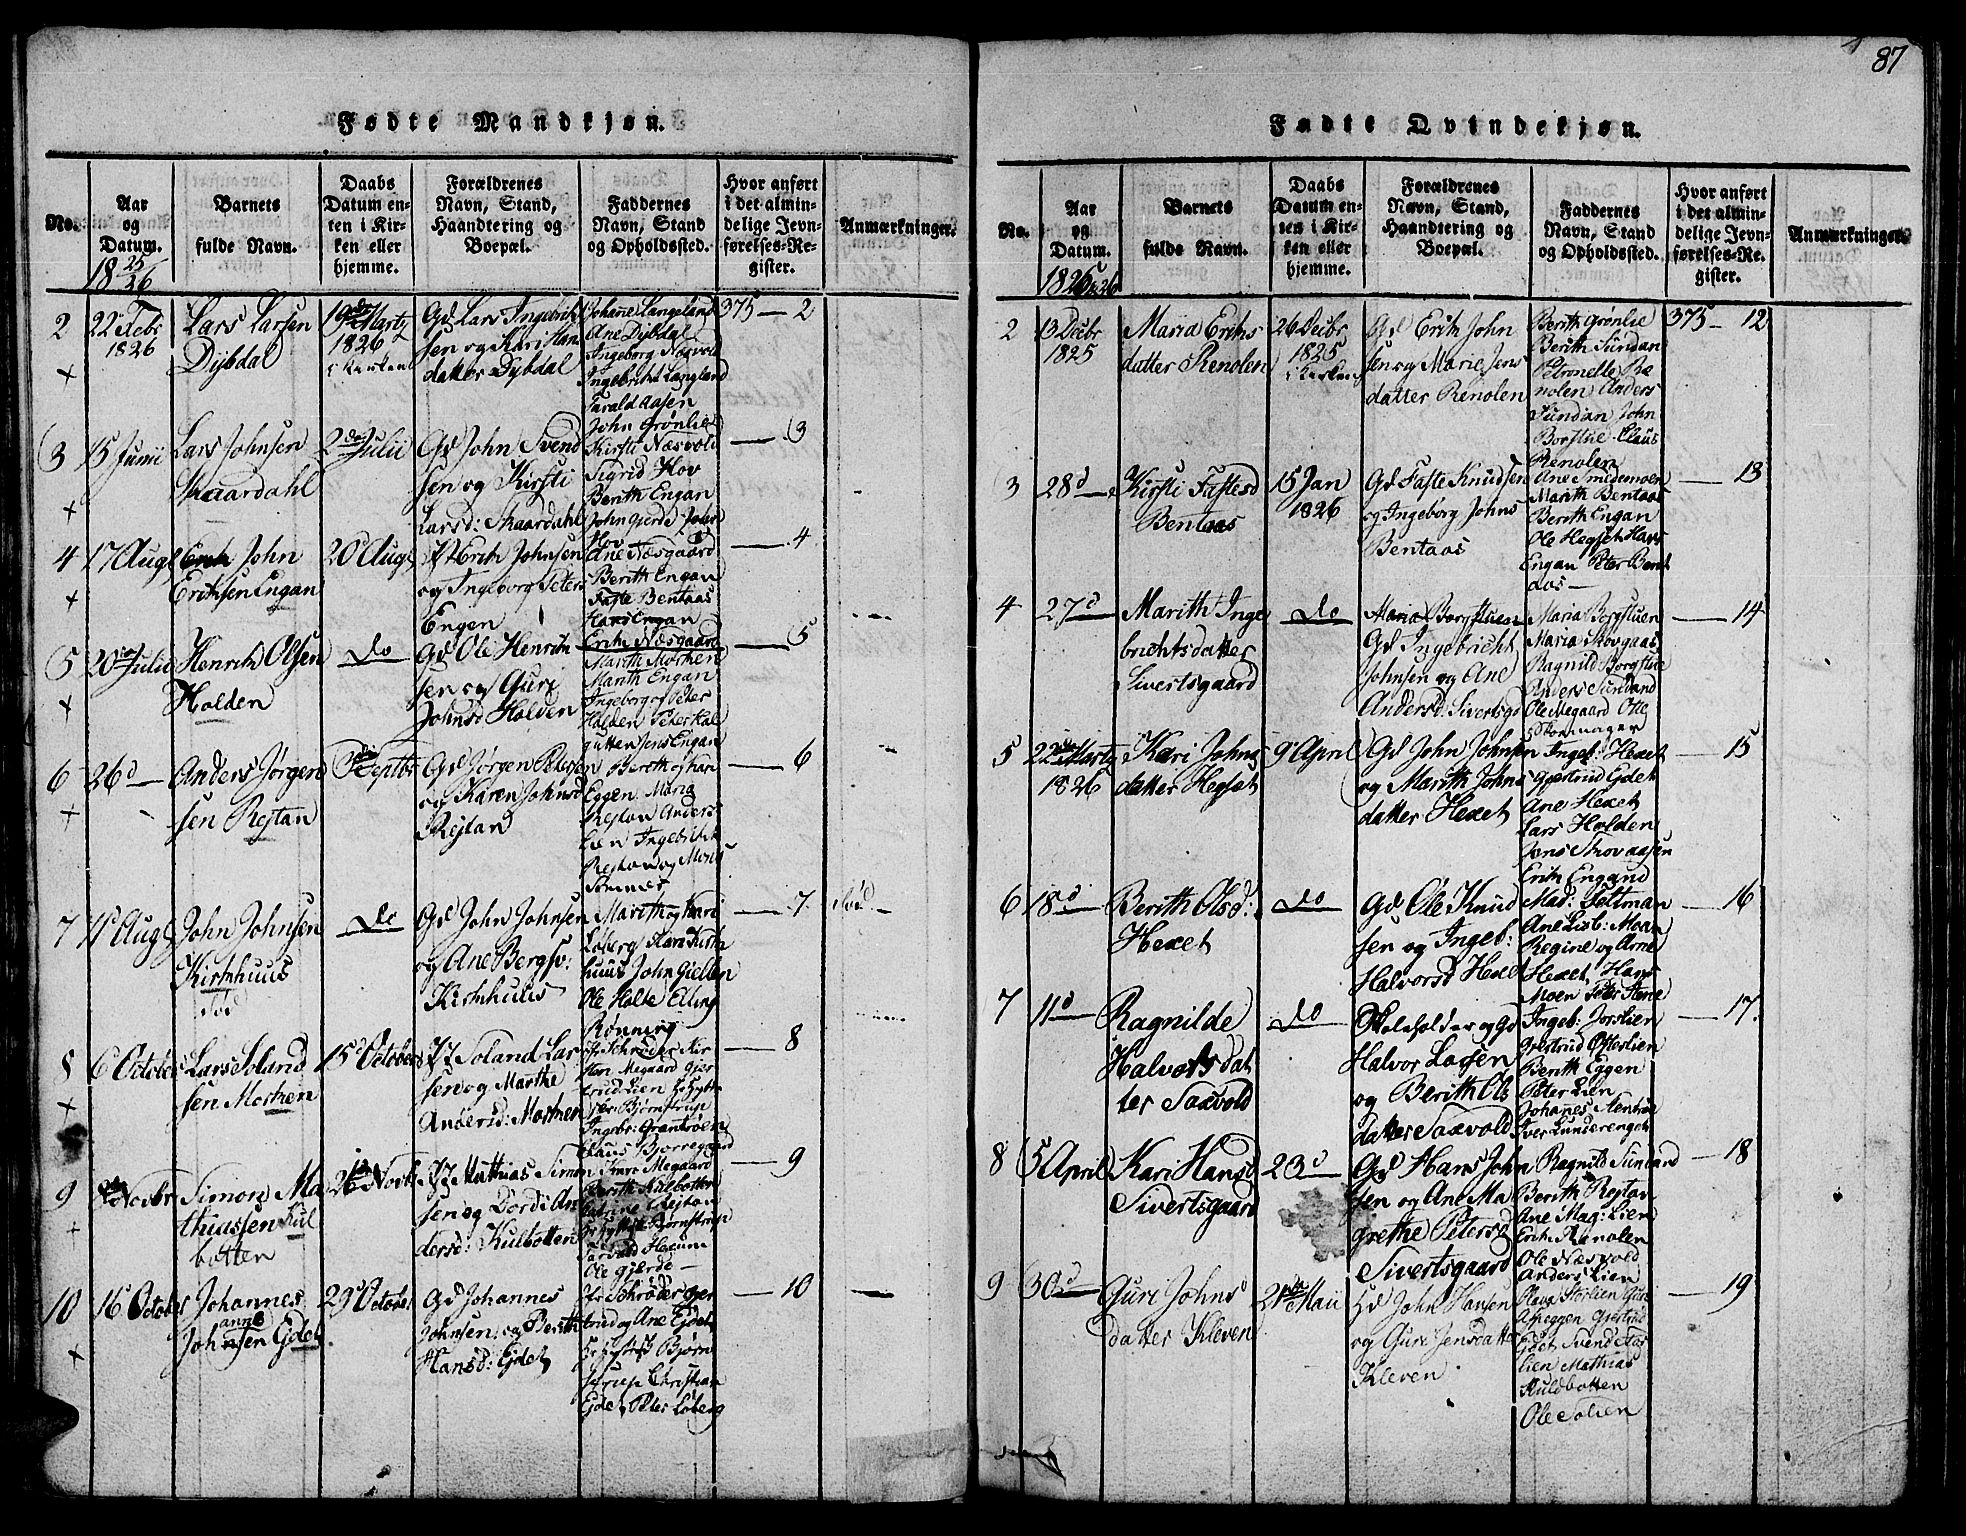 87
Fødte Mandkjøn.
No.
Aar
og
Datum.
1825/26
Barnets
fulde Navn.
Daabs
Datum en-
ten i Kir-
ken eller
hjemme.
Forældrenes
Navn, Stand,
Haandtering og
Boepæl.
Faddernes
Navn, Stand
og Opholdssted.
Hvor anført
i det almin-
delige Jevn-
førelses-Re-
gister.
Anmærkninger.
2
22 Febr
1826
Lars Larsen
Dybdal
19de Marty
1826
i Kirken
Gd Lars Ingebrikt
sen og Kari Hans
datter Dybdal
Johanne Langeland
Ane Dybdal
Ingeborg Næsvold
Ingebricht Langland
Tarald Aasen
John Grønlie
375 — 2
3
15 Junii
Lars Johnsen
Skaardahl
2den Julii
Gd John Svend
sen og Kirsti
Larsd: Skaardahl
Kirsti Næsvold
Sigrid Hov
Berith Engan
John Gjerde John
Hov
— 3
4
17 Aug
John
Eriksen Engan
20 Aug
It Erik Johnsen
og Ingeborg Peters
Engen
Ane Næsgaard
Berith Engan
Faste Bentaas
Hans Engan
Erik Næsgaard
— 4
5
20 Julii
Henrik Olsen
Holden
do
Gd Ole Henrik
sen og Guri
Johnsd Holden
Marith Morken
Marith Engan
Ingeborg og Peter
Holden Peter Kal
gutten Jens Engan
— 5
6
26 d —
Anders Jørgen
sen Rejtan
Septbr
Gd Jørgen Petersen
og Karen Johnsd
Rejtan
Berith og Kari
Eggen Maria
Rejtan Anders
Lien Ingebrikt
Rejtan og Mons
— 6
7
11 Aug
John Johnsen
Kirkhuus
død
do
Gd John Johnsen
og Ane Bergsv:
Kirkhuus
Marith og Kari
Løberg Kari Kirk
huus John
Ole Holte Elling
Rønning
— 7
død —
8
6 October
Lars Soland
sen Morken
15 October
It Soland Lar
sen og Marthe
Andersd: Morken
Fr Schrøder Kir
sten Megaard Gjer
trud Lien
Bjørnstrup
Ingebr: Grantrøen
Claus Bjorregaard
— 8
9
Novbr
Simon Ma
thiassen Kul
botten
26 Novbr
It Mathias Simon
sen og Dordi An
dersd: Kulbotten
Megaard
Berith Kulbotten
Rejtan
Bjørnstrup
Tarald Hexum
Ole Gjerde —
— 9
10
16 October
Johannes
Johannesen Eidet
29 October
Gd Johannes
Johnsen og Berith
Hansd: Ejdet
Fr Schrøder Gjer
trud og Ane Ejdet
Bjørn
strup Christian
Ejdet Peter Løberg
— 10
Fødte Qvindekjøn.
No.
Aar
og
Datum.
1825 & 26
Barnets
fulde Navn.
Daabs
Datum en-
ten i Kir-
ken eller
hjemme.
Forældrenes
Navn, Stand,
Haandtering og
Boepæl.
Faddernes
Navn, Stand
og Opholdssted.
Hvor anført
i det almin-
delige Jevn-
førelses-Re-
gister.
Anmærkninger.
2
13 Decbr
1825
Maria Eriks
datter Renolen
26 Decbr
1825
i Kirken
Gd Erik John
sen og Marie Jens
datter Renolen
Berith Grønlie
Berith Sundan
Petronelle Re
nolen Anders
Sundan John
Borstue Claus
Renolen
375 — 12
3
28 d —
Kirsti Fastesd
Bentaas
15 Jan
1826
Gd Faste Knudsen
og Ingeborg Johns
Bentaas
Ane Smedemoen
Marith Bentaas
Berith Engan
Ole Hegset Hans
Engan Peter Bent
aas —
— 13
4
27 d
Marith Inge
brichtsdatter
Sivertsgaard
do
Maria Borgstuen
Gd Ingebricht
Johnsen og Ane
Andersd: Sivertsgd
Maria Borgstuen
Maria Skovgaas
Ragnild Borgstue
Anders Sundand
Ole Megaard Ole
Skomager
— 14
5
22 Marty
1826
Kari Johns
datter Hegset
9 April
Gd John Johnsen
og Marith Johns
datter Hexet
Ingeb: Hexet
Gjertrud Ejdet
Ane Hexet
Lars Holden
Jens Skovaasen
Erik Engand
— 15
6
18 d
Berith Olsd:
Hexet
do
Gd Ole Knud
sen og Ingeb:
Halvorsd Hexet
Mad: Feltman
Ane Lisb: Moan
Regine og Arne
Hexet Hans
Moen Peter Stene
— 16
7
11 d
Ragnilde
Halvorsdat
ter Saxvold
do
Skoleholder og Gd
Halvor Larsen
og Berith Ols
datter Saxvold
Ingeb: Jorslien
Gjertrud Østerlien
Berith Eggen
Peter Lien
Johanes
Iver Lunderenget
— 17
8
5 April
Kari Hansd
Sivertsgaard
23 d
Gd Hans John
sen og Ane Ma
grethe Petersd
Sivertsgaard
Ragnild Sundand
Berith Rejtan
Ane Mag: Lien
Erik Renolen
Ole Næsvold
Anders Lien
— 18
9
30 d
Guri Johns
datter Kleven
21 Maii
Hd John Hansen
og Guri Jensdatter
Kleven
Gjertrud
Ejdet Svend Aas
lien Mathias
Kuldbotten
Ole Solien
— 19